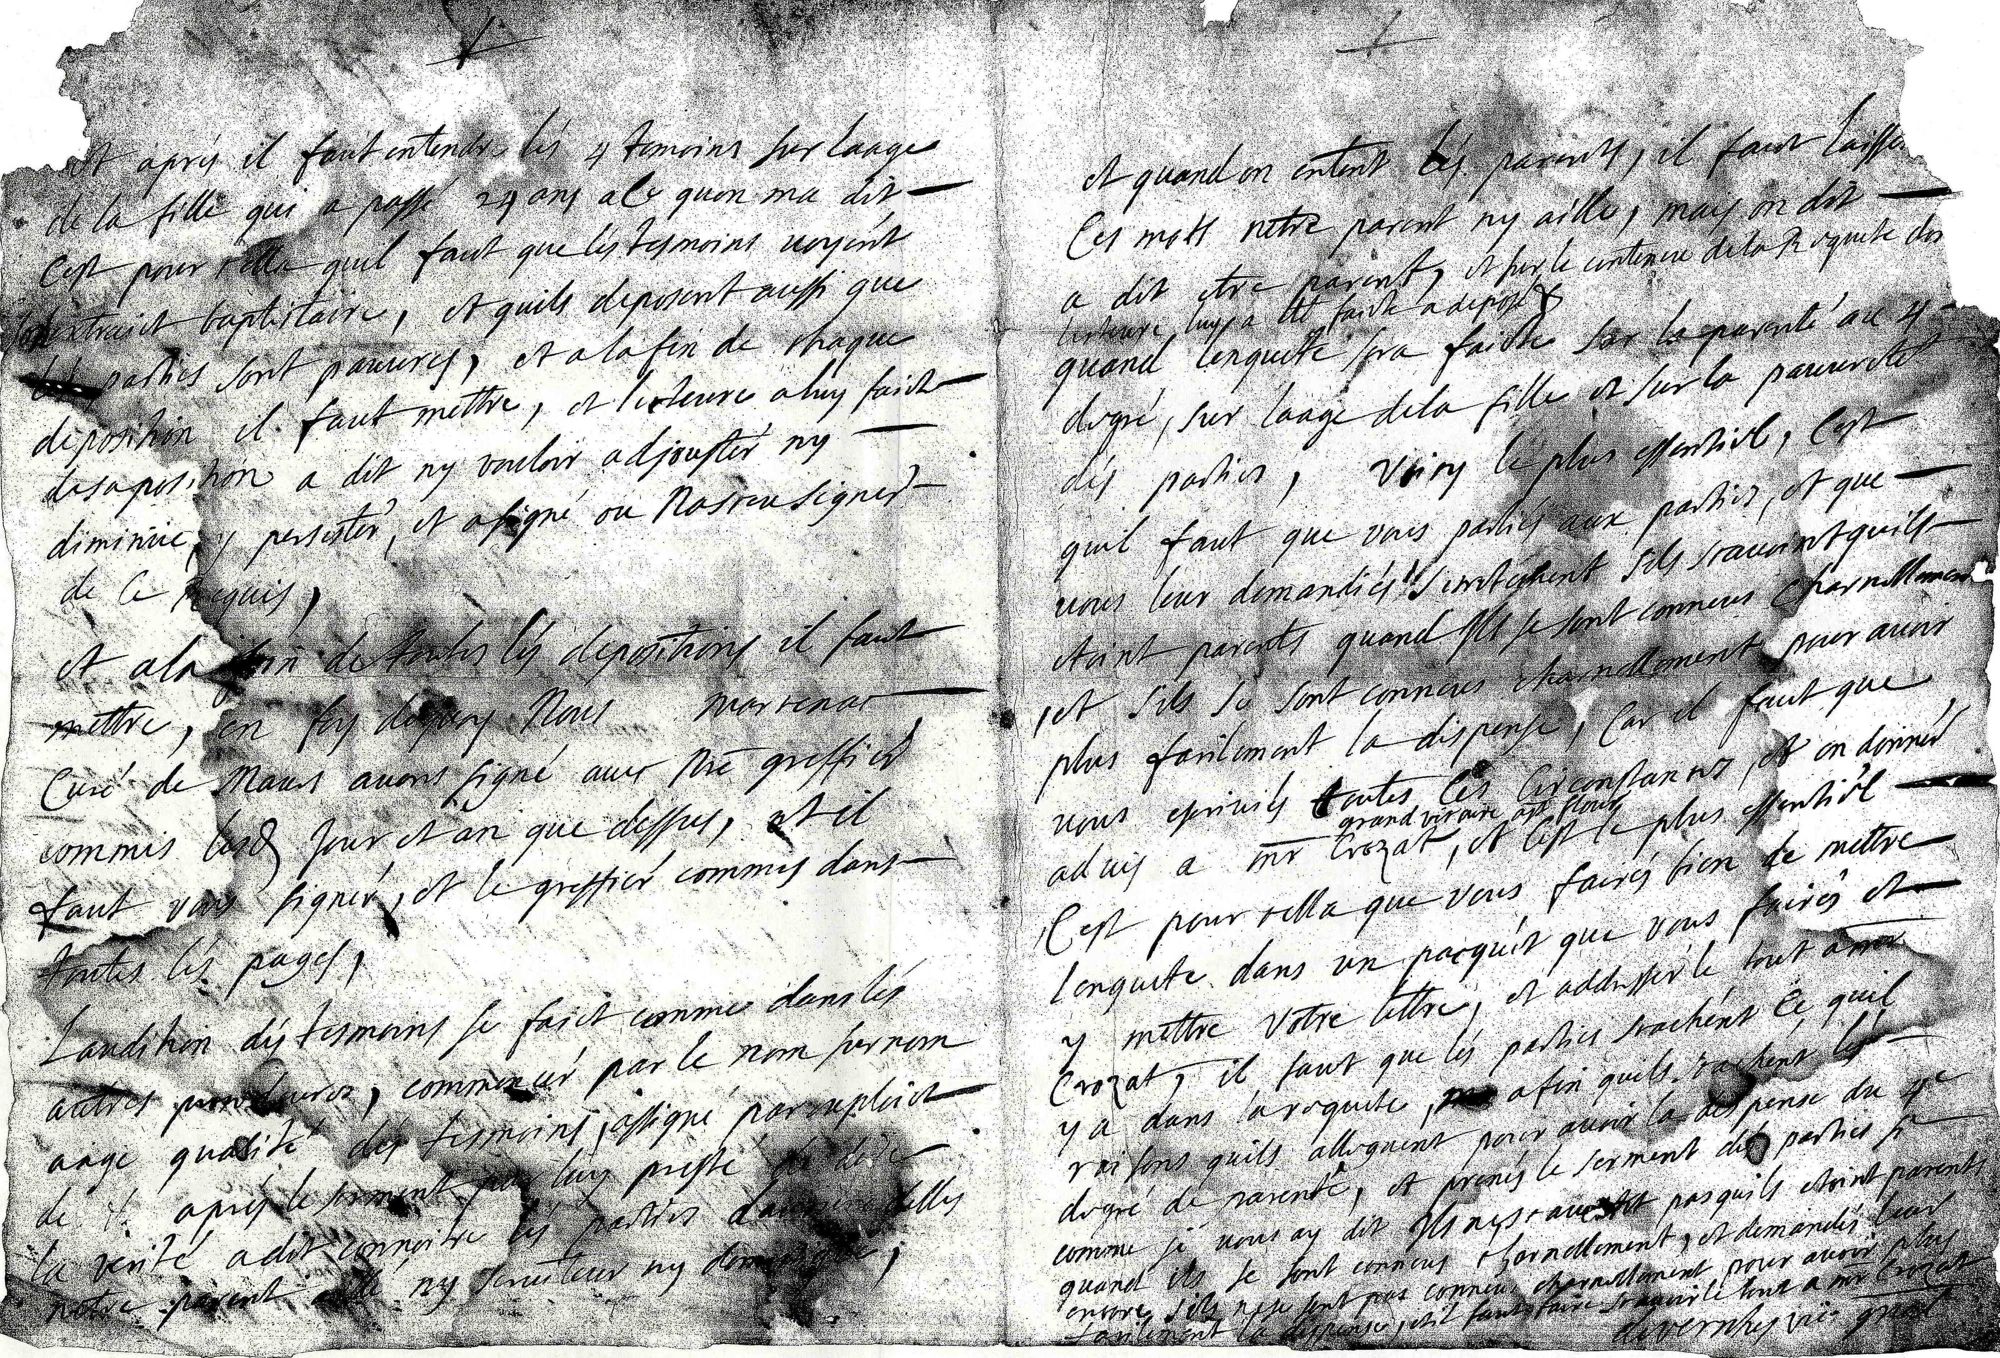 et aprés il faut entendre lés 4 temoins sur laage
de la fille qui a passé 24 ans a ce quon ma dit
Cest pour cella quil faut que lés tesmoins voyent
extraict baptistaire, et quils deposent aussi que
parties sont pauvres, et a la fin de chaque
deposition il faut mettre, et lecteure a luy faict
de sa position a dit ny vouloir adjouster ny
diminüe, y persister, et a signé ou na sceu signer
de Ce Requis,
et a la fin de toutes lés depositions il faut
mettre, en foy dequoy Nous
Curé de avons signé avec greffier
commis Jour et an que dessus, et il
faut vous signer, et le greffier commis dans
toutes lés pages,
Laudition dés tesmoins se faict comme dans lés
autres procedures, commencer par le nom surnom
aage qualité dés tesmoins, assigné par exploict
de aprés le serment par luy presté de dire
la verité a dit connoitre lés parties
notre parent allié ny serviteur ny domestique,
et quand on entent lés parents, il faut laisser
Ces mots netre parent ny aillé, mais on dit
a dit etre parent, et sur le contenu de la Requete dont
lecteure luy a eté faicte a deposé
quand lenquete sera faicte sur la parenté au 4
degré, sur laage de la fille et sur la pauvreté
dés parties, Voicy le plus essentiel, Cest
quil faut que vous parliés aux parties, et que
vous leur demandiés secretement sils scavoint quils
etoint parents quand ils se sont conneus charnellement
et sils se sont conneus charnellement pour avoir
plus facilement la dispense, Car il faut que
vous escriviés toutes lés Circonstances, et en donner
grand vicaire a St flour
advis a mr Crozat, et Cest le plus essentiel
Cest pour cella que vous fairés bien de mettre
lenquete dans un pacquét que vous fairés et
y mettre votre lettre, et addresser le tout a mr
Crozat, il faut que lés parties scachént Ce quil
y a dans la requete, afin quils scachent lés
raisons quils alleguent pour avoir la dispense du 4e
degré de parenté, et prenés le serment dés parties si
comme je vous ay dit ils ne scavoint pas quils etoint parents
quand ils se sont conneus charnellement, et demandés leur
encore sils ne se sont pas conneus charnellement pour avoir plus
facilement la dispense, et il faut faire scavoir le tout a mr Crozat